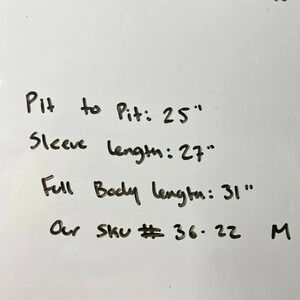 Pit to Pit: 25"
Sleeve Length: 27"
Full Body Length: 31"
Our SKU # 36-22 M